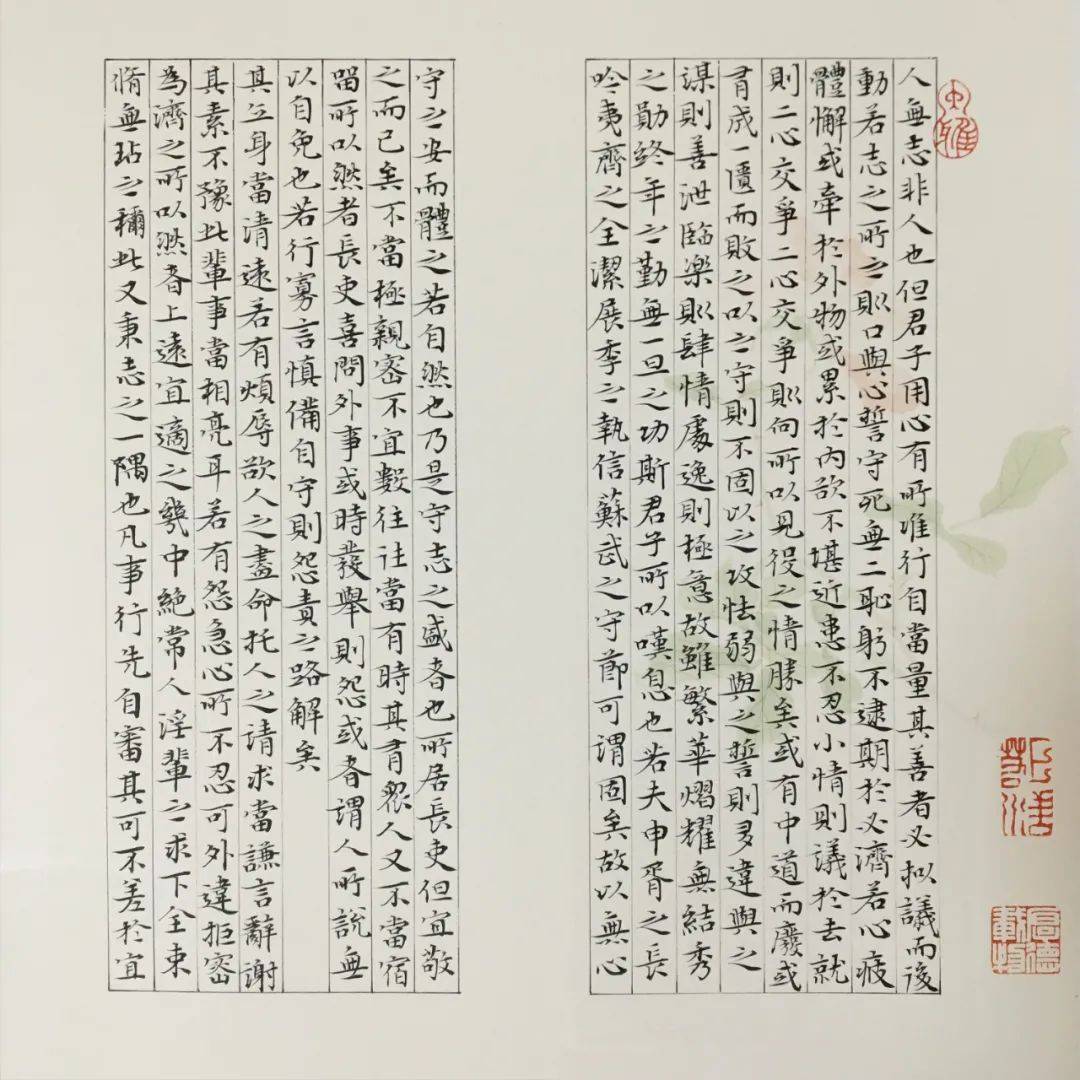 人無志非人也但君子用心有所准行自當量其善者必拟議而後
動若志之所之則口與心誓守死無二恥躬不逮期於必濟若心疲
體懈或牽於外物或累於内欲不堪近患不忍小情則議於去就
則二心交爭二心交爭則向所以見役之情勝矣或有中道而廢或
有成一匱而敗之以之守則不固以之攻怯弱與之誓則多違與之
謀則善泄臨樂則肆情處逸則極意故雖繁華熠耀無結秀
之勛終年之勤無一旦之功斯君子所以嘆息也若夫申胥之長
吟夷齊之全潔展季之執信蘇武之守節可謂固矣故以無心
守之安而體之若自然也乃是守志之盛者也所居長吏但宜敬
之而已矣不當極親密不宜數往往當有時其有眾人又不當宿
留所以然者長吏喜問外事或時發舉則怨或者謂人所說無
以自免也若行寡言慎備自守則怨責之路解矣
其立身當清遠若有煩辱欲人之盡命托人之請求當謙言辭謝
其素不豫此輩事當相亮耳若有怨急心所不忍可外違拒密
為濟之所以然者上遠宜適之幾中絕常人淫輩之求下全束
脩無玷之稱此又秉志之一隅也凡事行先自審其可不差於宜